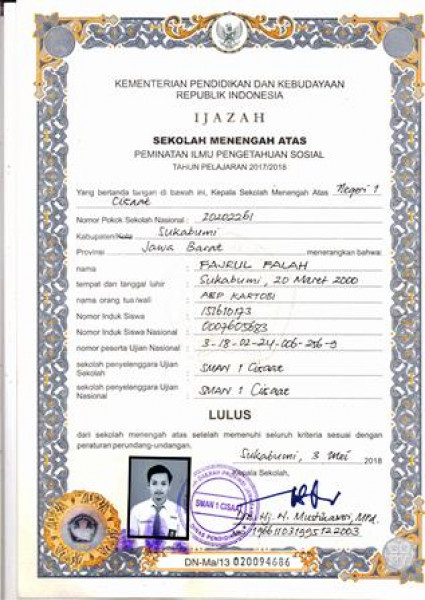 KEMENTERIAN PENDIDIKAN DAN KEBUDAYAAN
REPUBLIK INDONESIA
IJAZAH
SEKOLAH MENENGAH ATAS
PEMINATAN ILMU PENGETAHUAN SOSIAL
TAHUN PELAJARAN 2017/2018
Yang bertanda tangan di bawah ini, Kepala Sekolah Menengah Atas Negeri 1
Cisaat
Nomor Pokok Sekolah Nasional : 20202261
Kabupaten/Kota : Sukabumi
Provinsi : Jawa Barat menerangkan bahwa:
nama : FAJRUL FALAH
tempat dan tanggal lahir : Sukabumi, 20 Maret 2000
nama orang tua/wali : AEP KARTOBI
Nomor Induk Siswa : 151610173
Nomor Induk Siswa Nasional : 0007605683
nomor peserta Ujian Nasional : 3-18-02-24-006-256-9
sekolah penyelenggara Ujian Sekolah : SMAN 1 Cisaat
sekolah penyelenggara Ujian Nasional : SMAN 1 Cisaat
LULUS
dari sekolah menengah atas setelah memenuhi seluruh kriteria sesuai dengan
peraturan perundang-undangan.
Sukabumi, 3 Mei 2018
Kepala Sekolah,
SMAN 1 CISAAT
Hj. H. MPd.
196611031995122003
DN-Ma/13 020094686